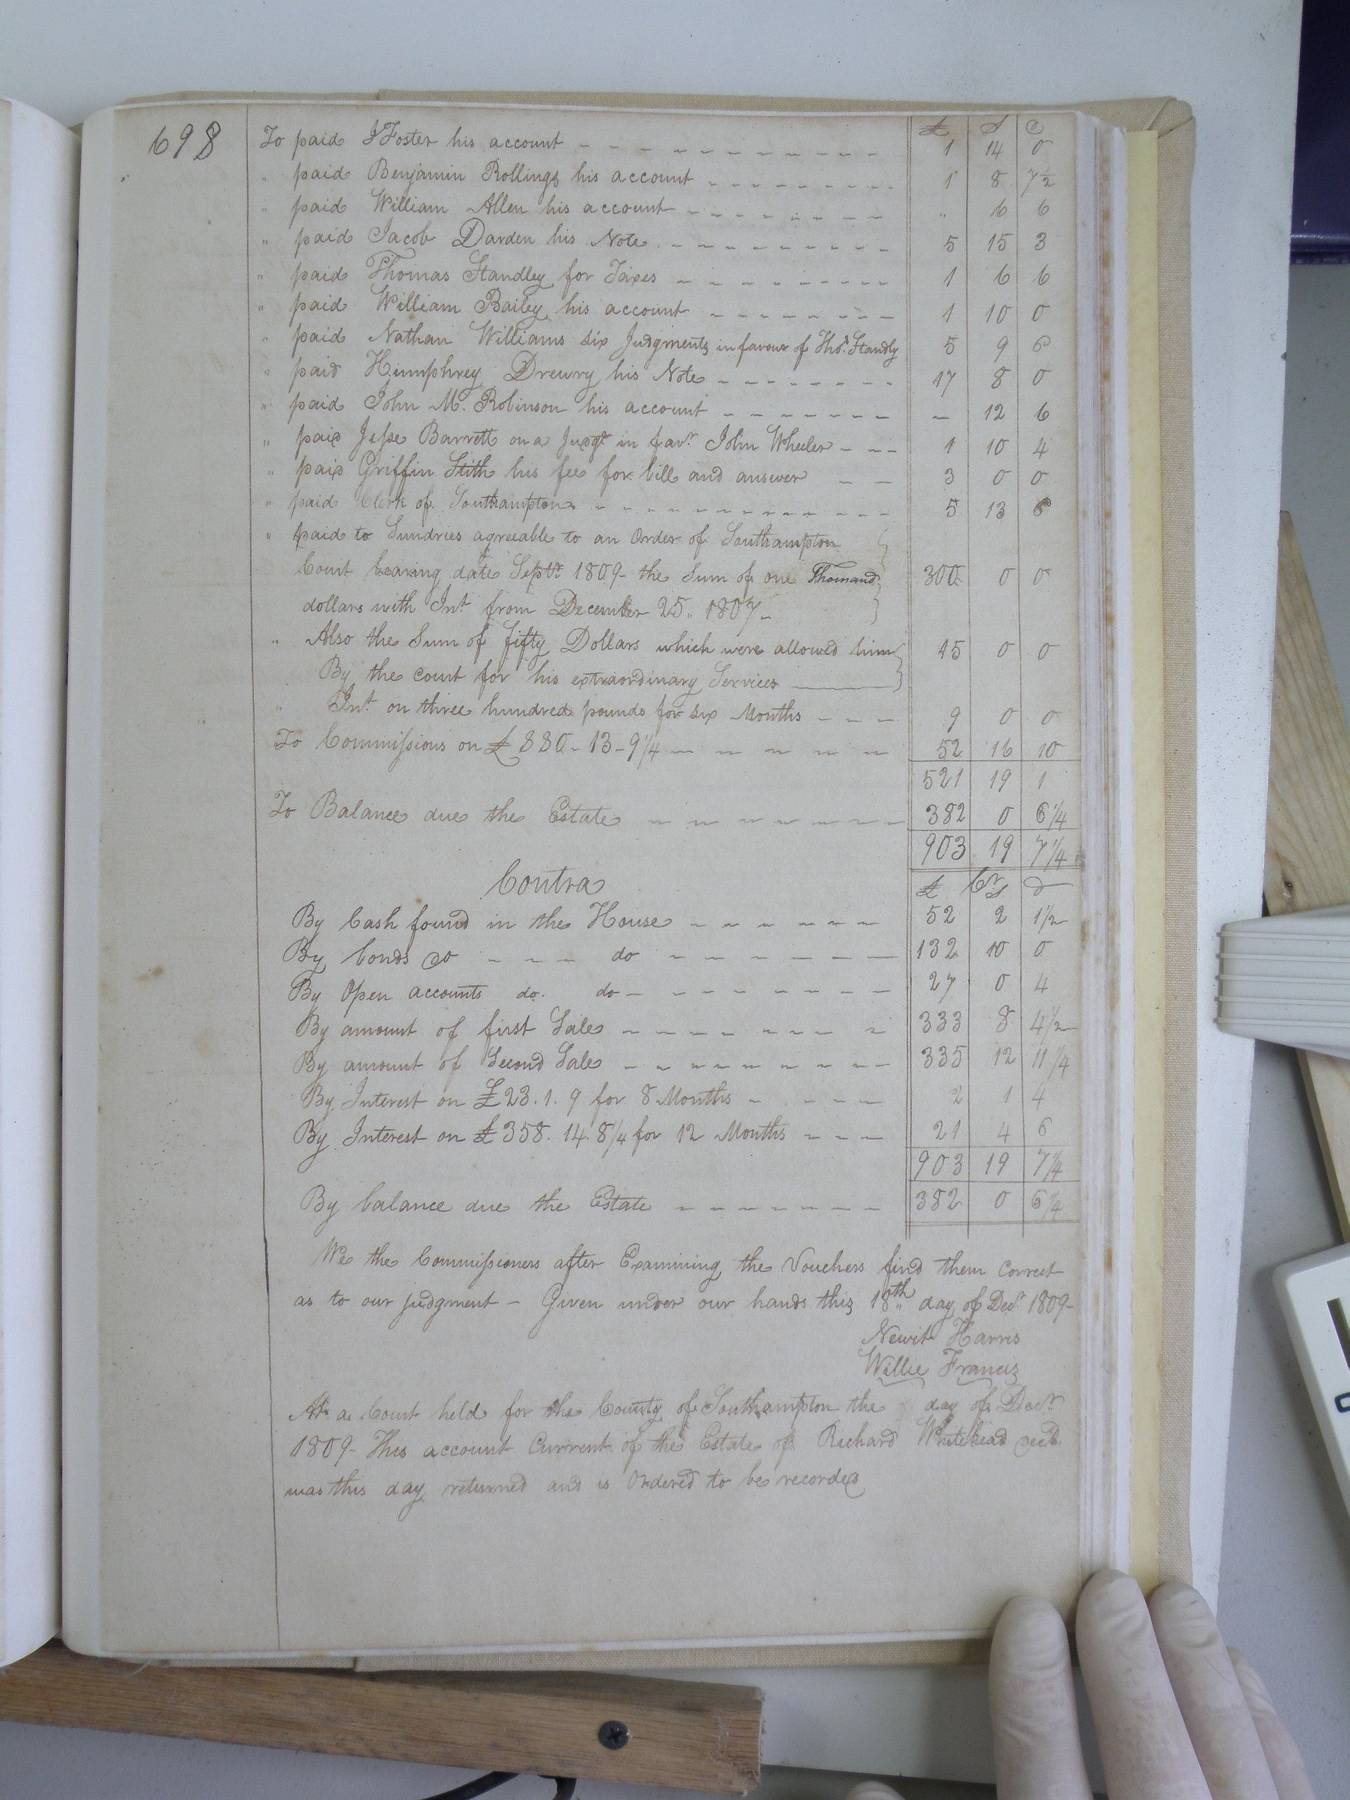 698
£ S D
To paid J Foster his account 1 14 0
" paid Benjamin Rollings his account 1 8 7½
" paid William Allen his account " 6 6
" paid Jacob Darden his Note 5 15 3
" paid Thomas Standley for Taxes 1 6 6
" paid William Bailey his account 1 10 0
" paid Nathan Williams six Judgments in favour of Thos. Standly 5 9 6
" paid Humphrey Drewry his Note 17 8 0
" paid John M. Robinson his account - 12 6
" paid Jesse Barrett on a Judgt in favr. John Wheeler 1 10 4
" paid Griffin Stith his fee for bill and answer 3 0 0
" paid Clerk of Southampton 5 13 8
" paid to Sundries agreeable to an Order of Southampton
Court bearing date Septr. 1809 - the Sum of one Thousand 300 0 0
dollars with Int from December 25.. 1807 -
" Also the Sum of fifty Dollars which were allowed him 15 0 0
By the court for his extraordinary Services
" Int. on three hundred pounds for six Months 9 0 0
To Commissions on £ 880 - 13 - 9¼ 52 16 10
521 19 1
To Balance due the Estate 382 0 6¼
903 19 7¼
Contra £ Cr S D
By Cash found in the House 52 2 1½
By bonds do do 132 10 0
By Open accounts do. do 27 0 4
By amount of first Sale 333 8 4½
By amount of Second Sale 335 12 11¼
By Interest on £23. 1. 9 for 8 Months 2 1 4
By Interest on £358. 14. 8¼ for 12 Months 21 4 6
903 19 7¼
By balance due the Estate 382 0 6¼
We the Commissioners after Examining the Vouchers find them Correct
as to our judgment - Given under our hands this 18th.. day of Decr. 1809 -
Newit Harris
Willie Francis
At a Court held for the County of Southampton the day of Decr
1809 - This account Current of the Estate of Richard Whitehead decd.
was this day returned and is Ordered to be recorded